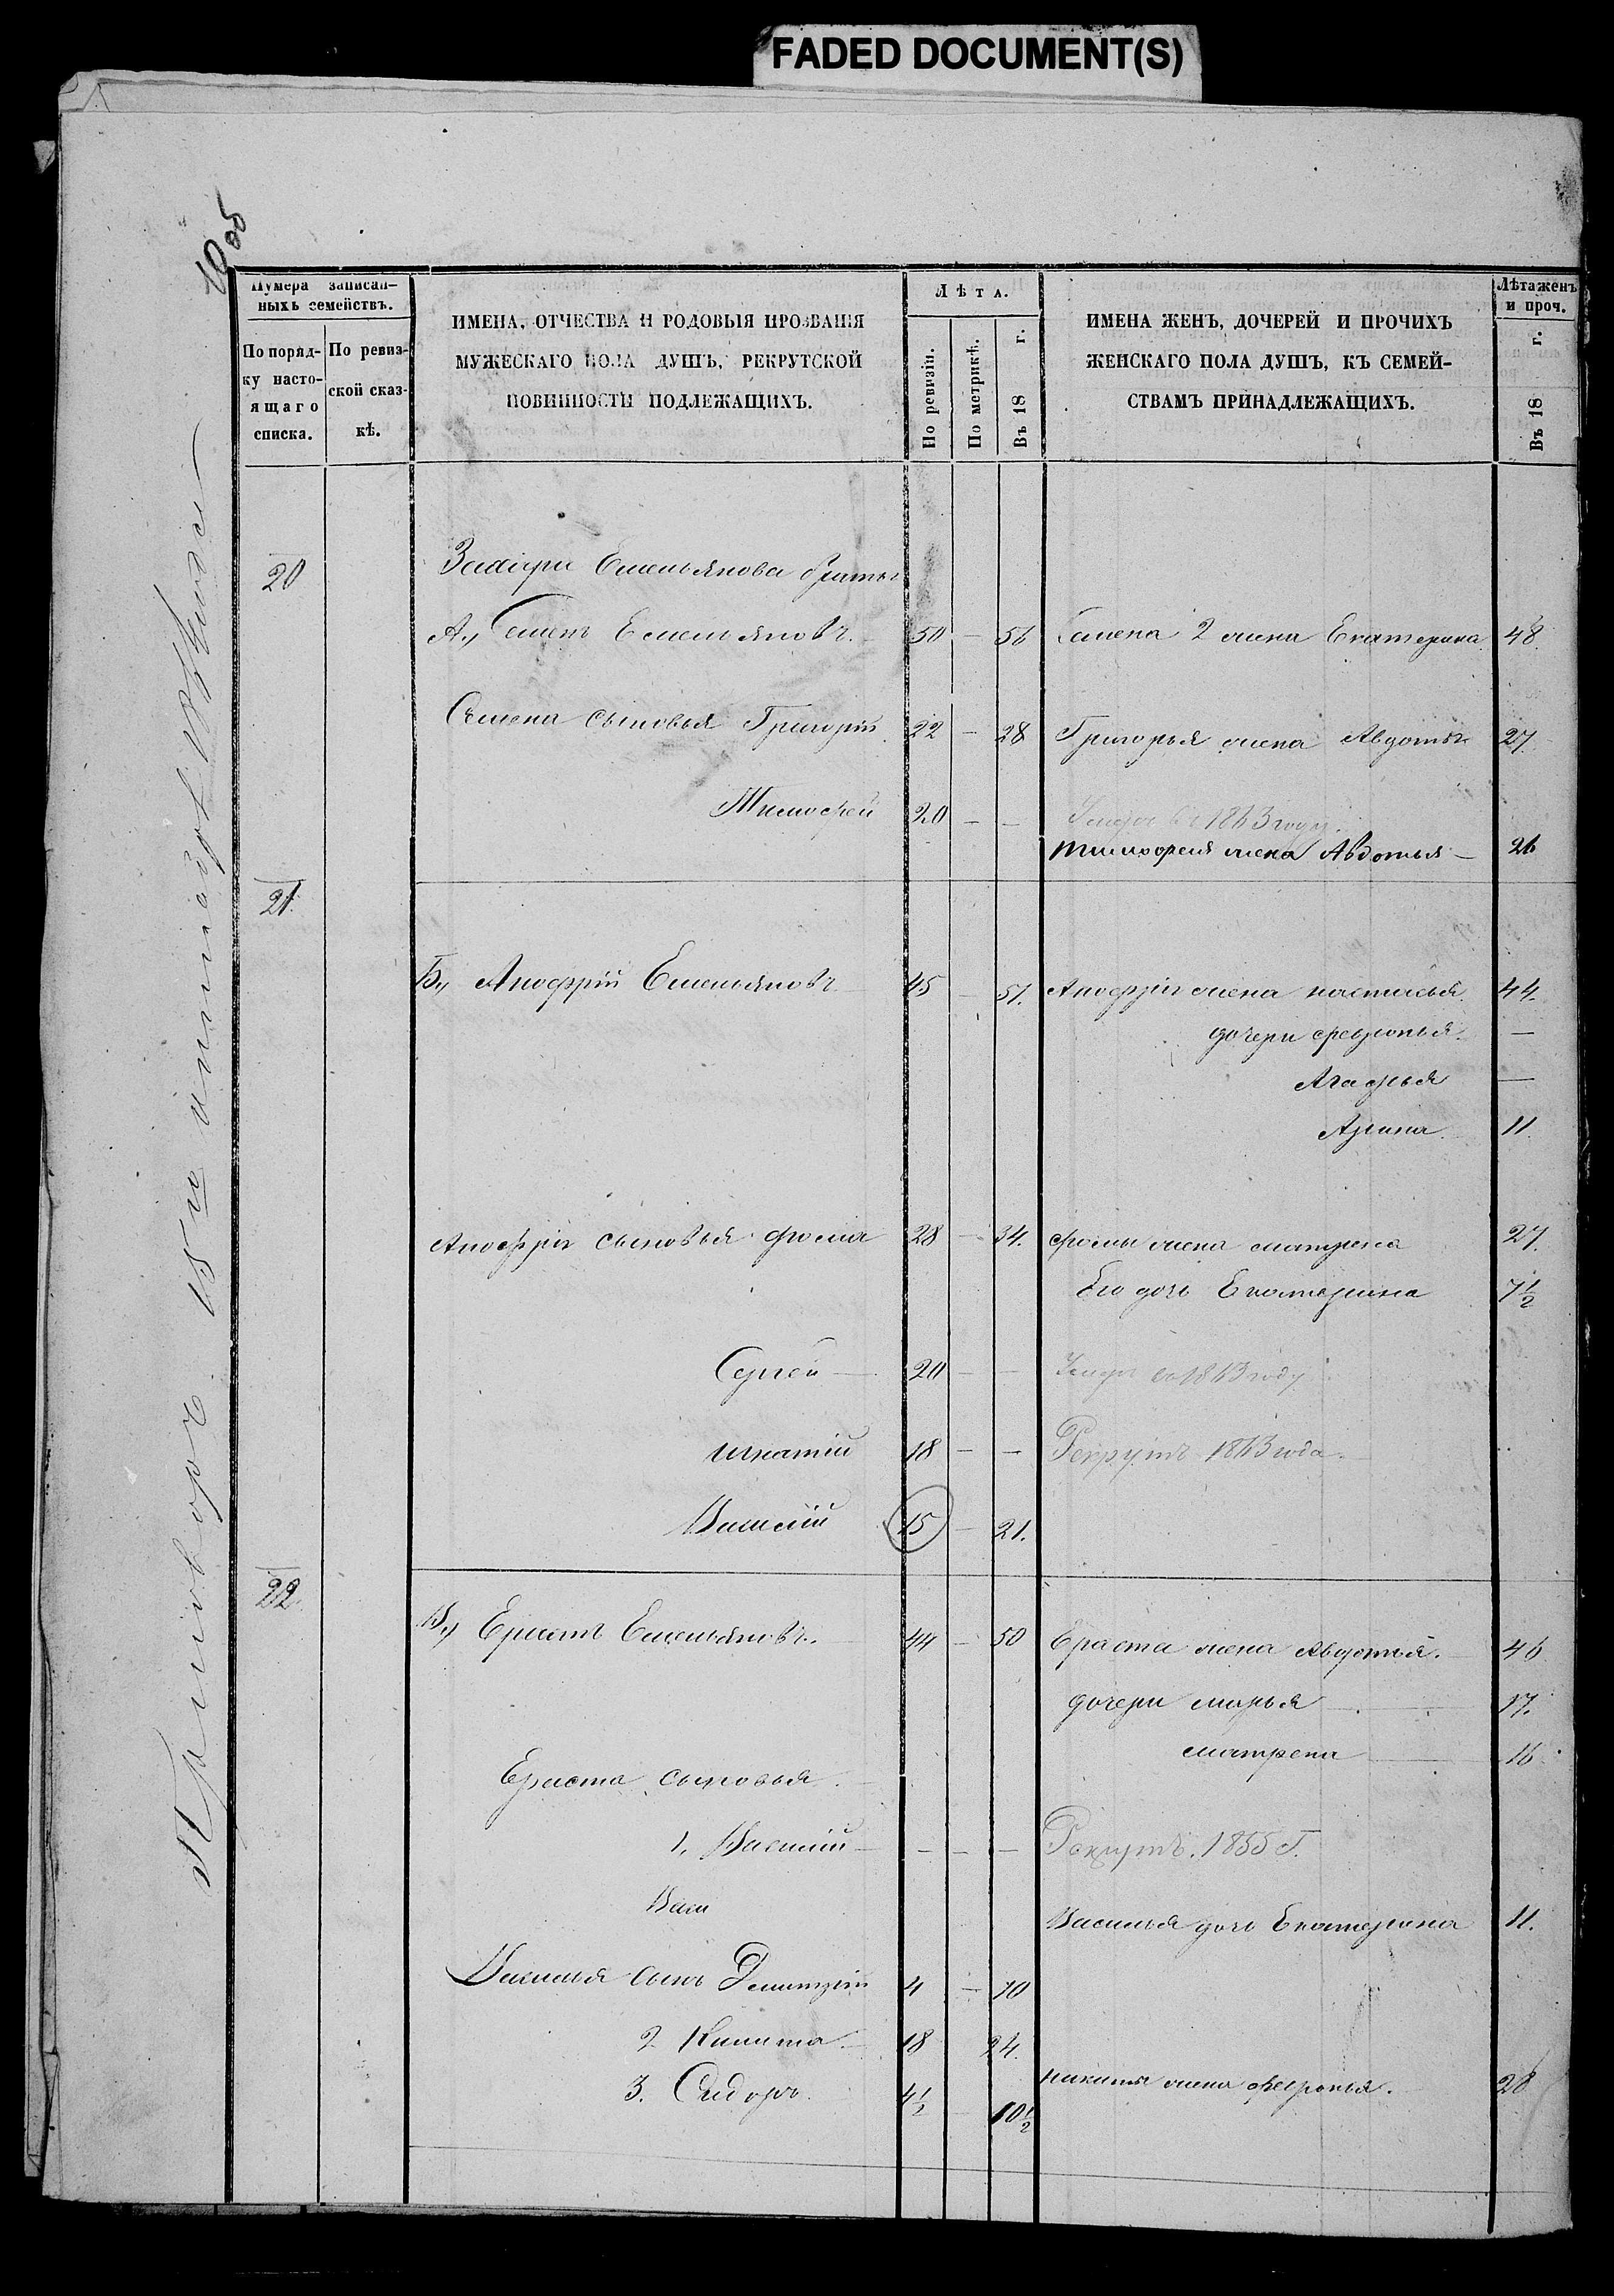 FADED DOCUMENT(S)
Нумера записан-
ныхъ семействъ.
По поряд-
ку насто-
ящаго
списка.
По ревиз-
ской сказ-
кѣ.
ИМЕНА, ОТЧЕСТВА И РОДОВЫЯ ПРОЗВАНІЯ
МУЖЕСКАГО ПОЛА ДУШЪ, РЕКРУТСКОЙ
ПОВИННОСТИ ПОДЛЕЖАЩИХЪ.
Лѣта.
По ревизіи.
По метрикѣ.
Въ 18 г.
ИМЕНА ЖЕНЪ, ДОЧЕРЕЙ И ПРОЧИХЪ
ЖЕНСКАГО ПОЛА ДУШЪ, КЪ СЕМЕЙ-
СТВАМЪ ПРИНАДЛЕЖАЩИХЪ.
Лѣта женъ
и проч.
Въ 18 г.
20 Емельянова братья
А., Семенъ Емельяновъ. 50 — 56 Семена 2 жена Екатерина 48.
Семена сыновья Григорій 22 — 28 Григорья жена Авдотья 27.
Тимофей 20 — — Умеръ въ 1863 году.
тимофея жена Авдотья — 26
21.
Б., Анофрій Емельяновъ 45 — 51. Анофрія жена настасья 44.
дочери февронья. —
Агафья —
Арина. 11.
Анофрія сыновья фома 28 — 34. фомы жена матрена 27.
Его дочь Екатерина 7½
Сергей — 20 — — Умеръ въ 1863 году.
игнатій 18 — — Рекрутъ 1863 года.
Василій 15 — 21.
22.
В., Ерастъ Емельяновъ. 44 — 50 Ераста жена Авдотья. 46
дочери марья 17.
матрена 16
Ераста сыновья.
1. Василій — — — — Рекрутъ. 1855 Г.
Васи
Василья дочь Екатерина 11.
Василья сынъ Дмитрій 4 — 10
2. Никита. 18 24.
никиты жена февронья. 28
3. Сидоръ. 4½ 10½